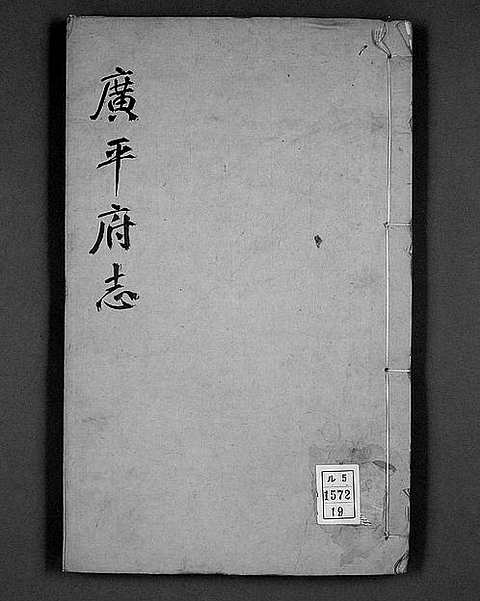 廣平府志
ル 5
1572
19